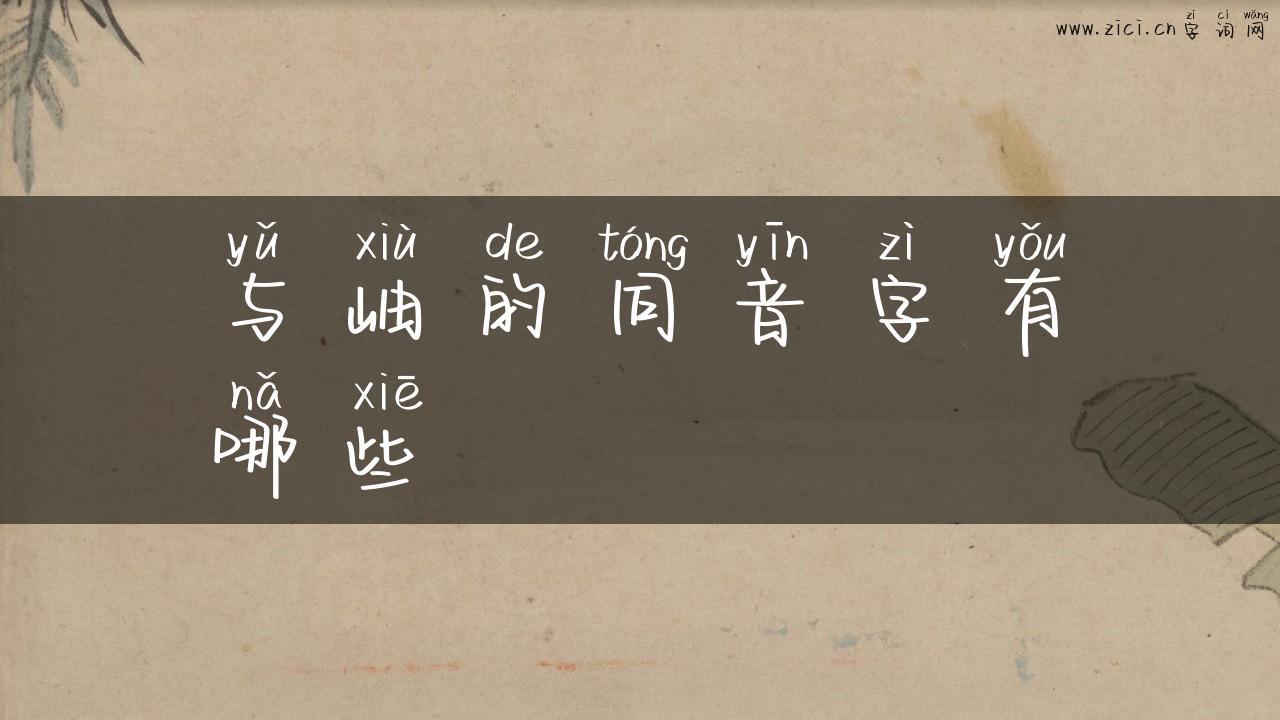 www.zici.cn
zì cí wǎng
字 词 网
yǔ xiù de tóng yīn zì yǒu
与 岫 的 同 音 字 有
nǎ xiē
哪 些